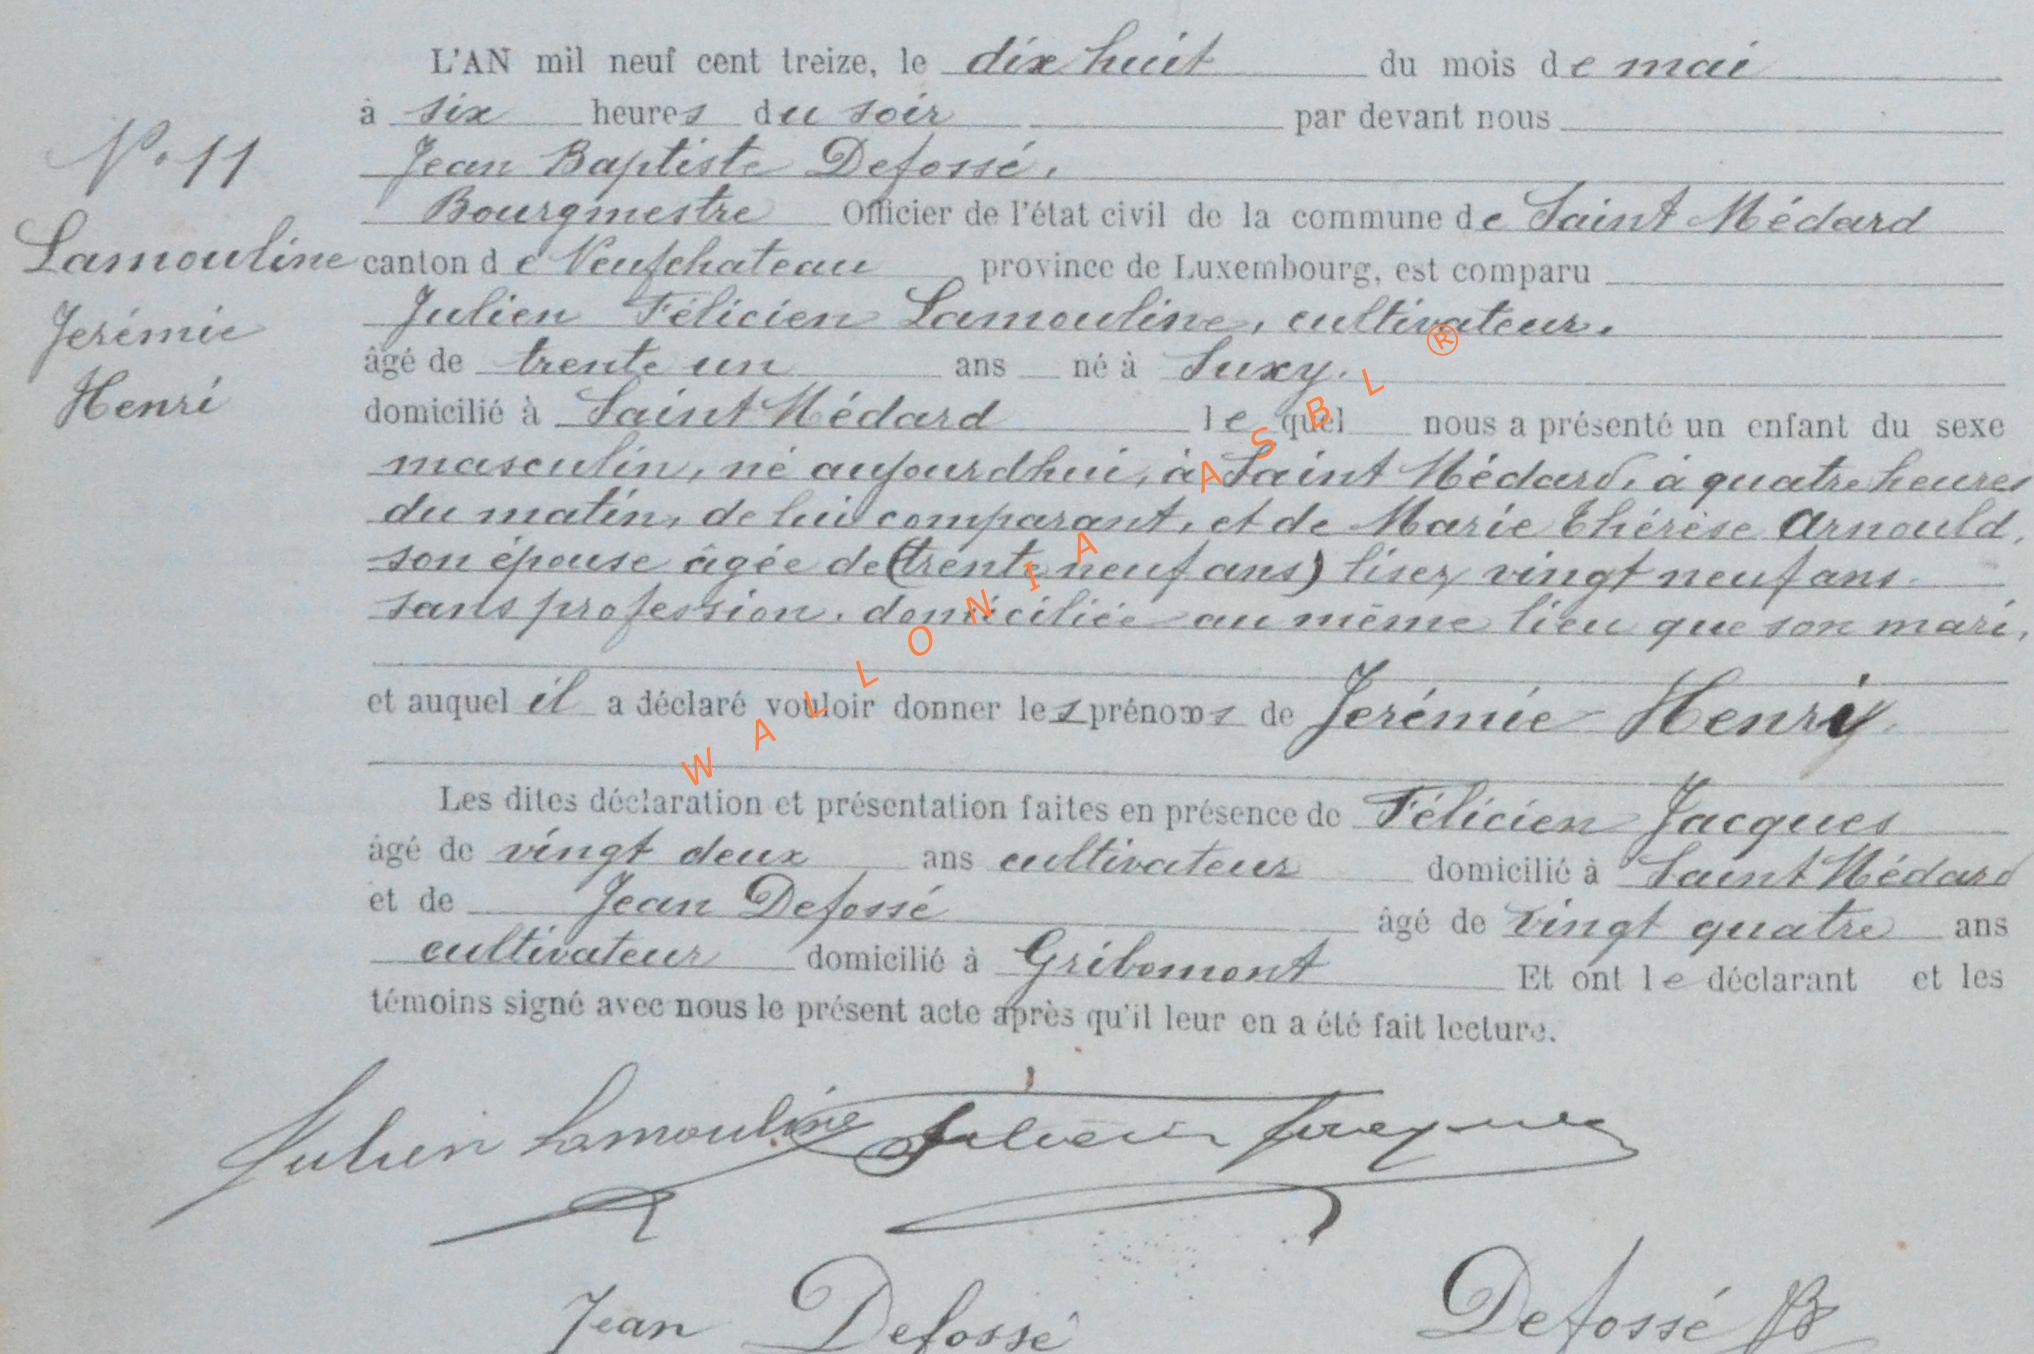 L'AN mil neuf cent treize, le dix huit du mois de mai
à six heures du soir par devant nous
N° 11
Jean Baptiste Defossé,
Bourgmestre Officier de l'état civil de la commune de Saint Médard
Lamouline
canton de Neufchateau province de Luxembourg, est comparu
Jerémie
Julien Félicien Lamouline, cultivateur,
âgé de trente un ans né à Suxy.
Henri
domicilié à Saint Médard lequel nous a présenté un enfant du sexe
masculin, né aujourdhui, à Saint Médard, à quatre heures
du matin, de lui comparant, et de Marie Thérèse Arnould,
son épouse âgée de (trente neuf ans) lisez vingt neuf ans
sans profession, domiciliée au même lieu que son mari,
et auquel il a déclaré vouloir donner les prénoms de Jerémie Henri
Les dites déclaration et présentation faites en présence de Félicien Jacques
âgé de vingt deux ans cultivateur domicilié à Saint Médard
et de Jean Defossé âgé de vingt quatre ans
cultivateur domicilié à Gribomont Et ont le déclarant et les
témoins signé avec nous le présent acte après qu'il leur en a été fait lecture.
Julien Lamouline Félicien Jacques
Jean Defossé Defossé JB
WALLONIA ASBL ®